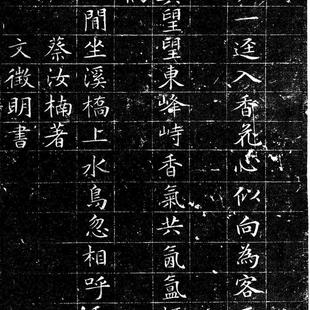 一迳入香花心似向為客
望望東峰峙香氣共氤氳
閒坐溪橋上水鳥忽相呼
蔡汝楠著
文徵明書